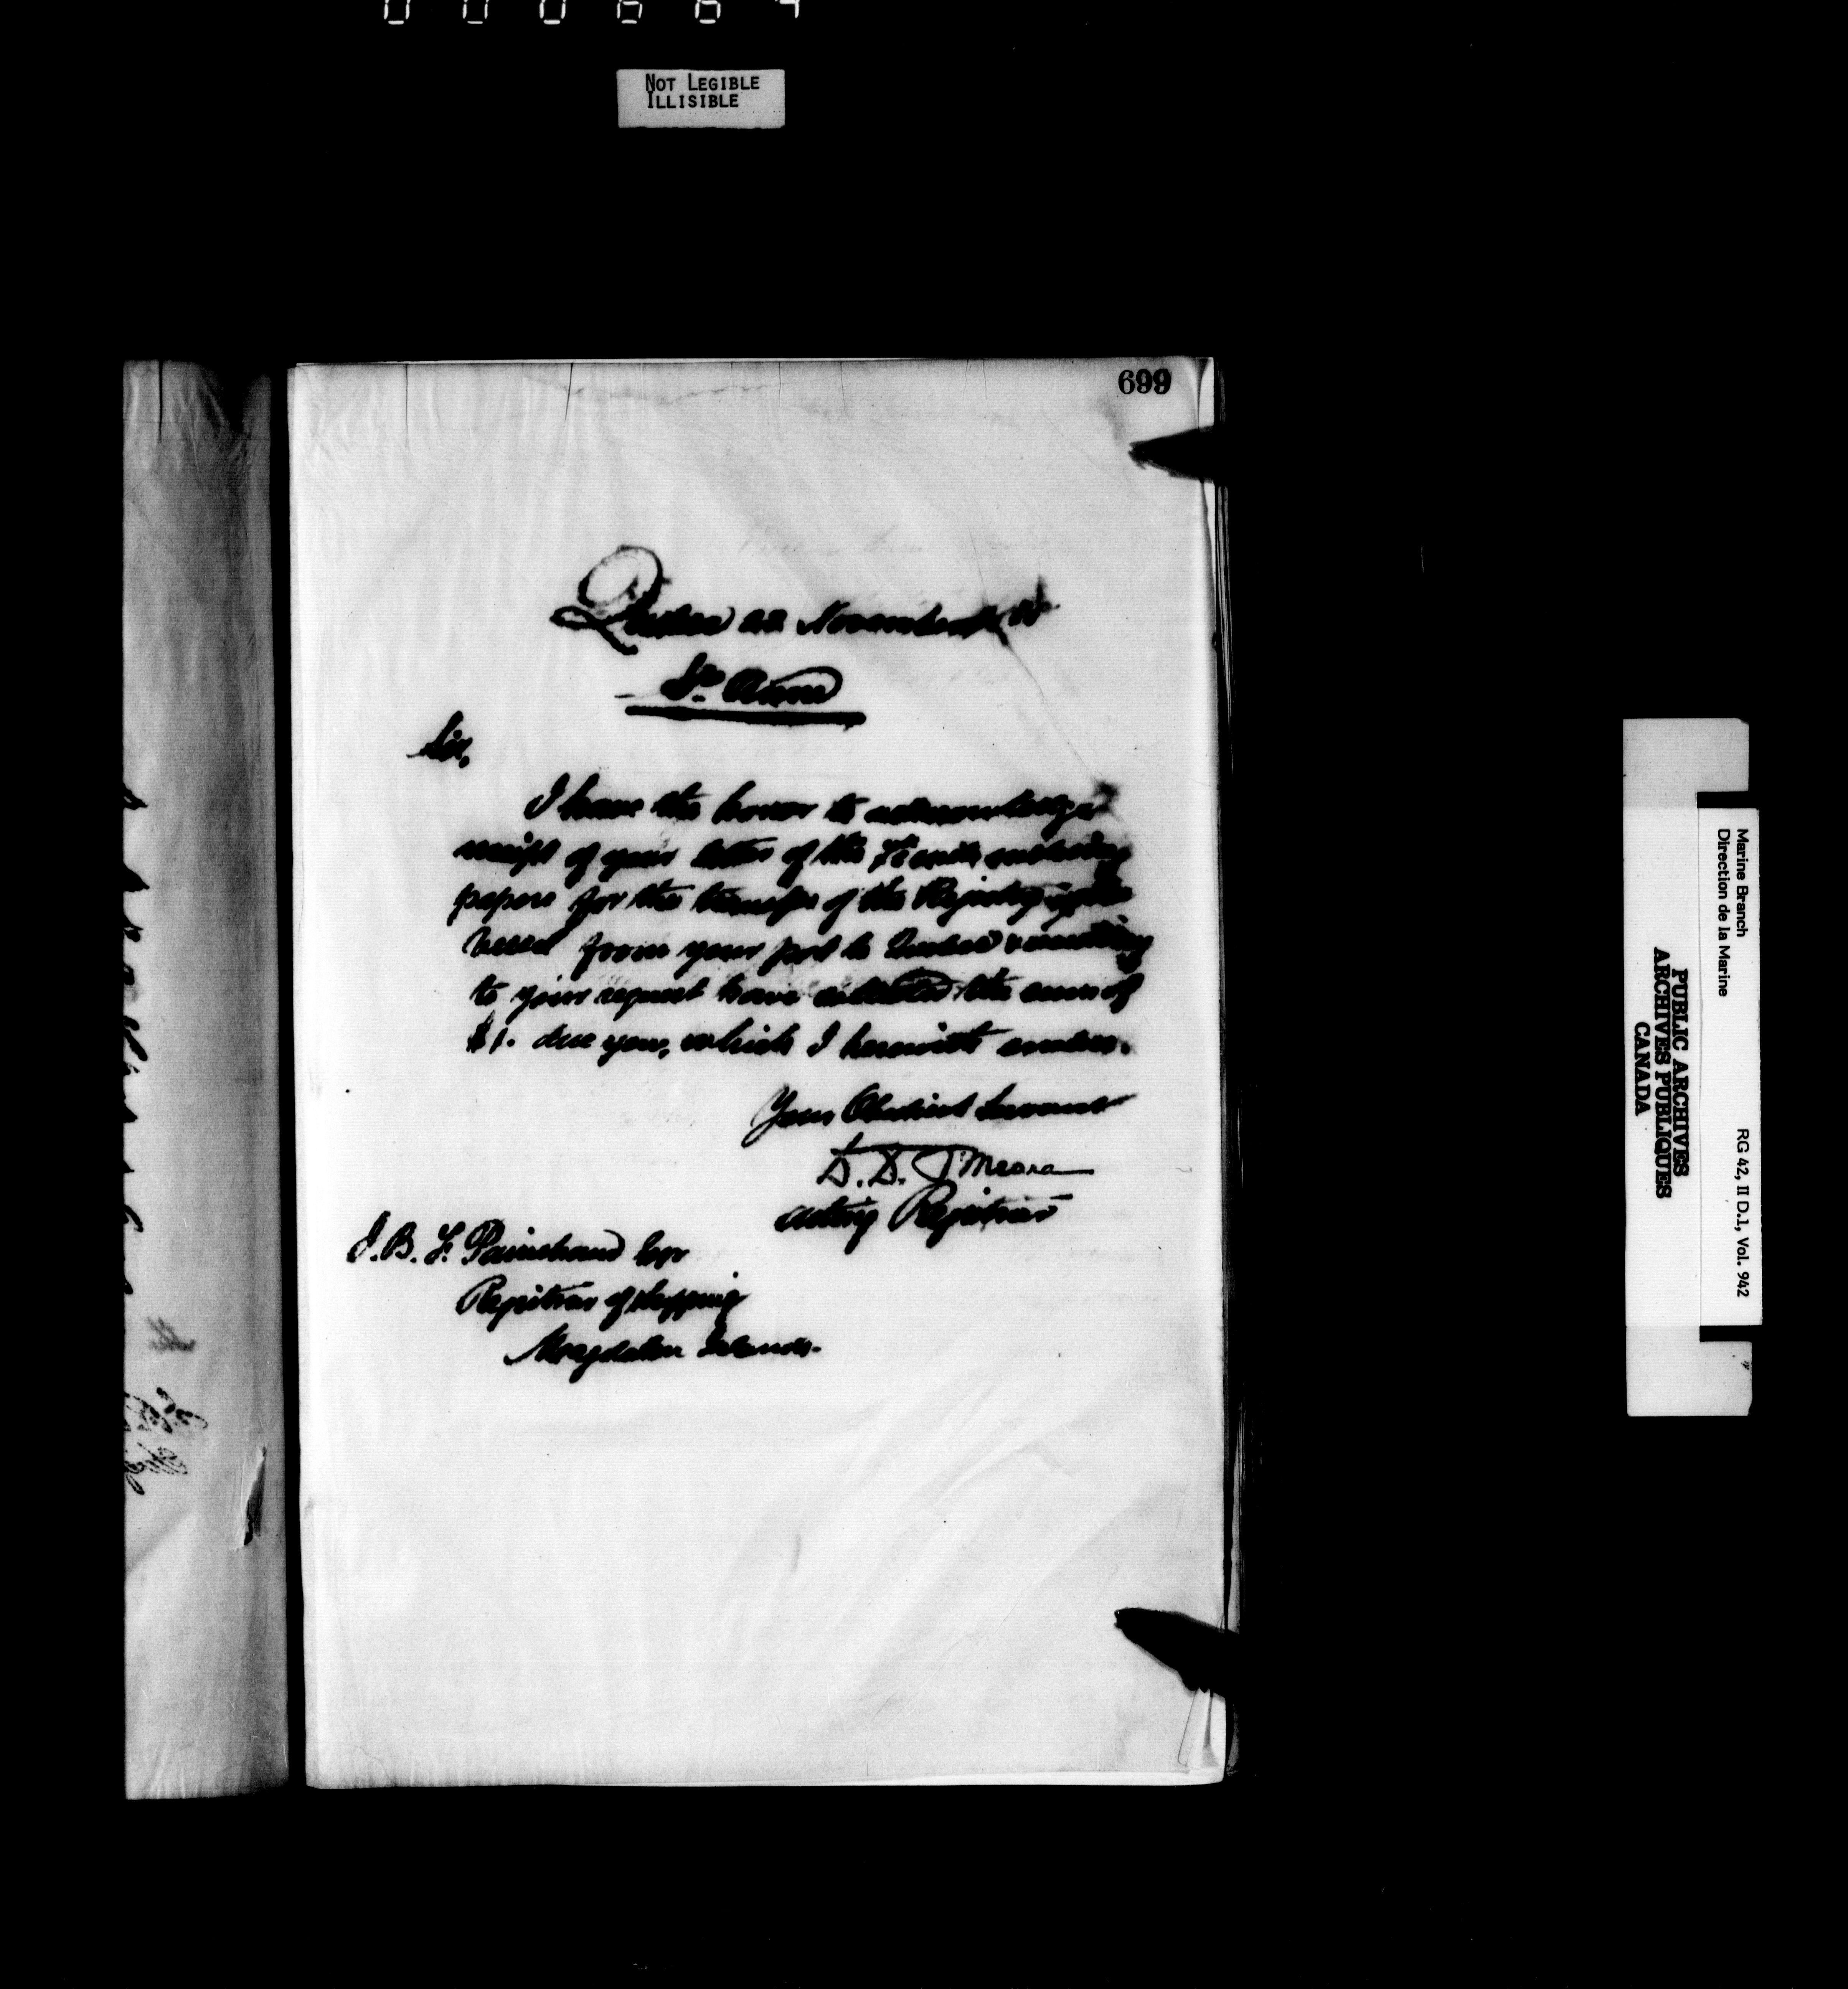 NOT LEGIBLE
ILLISIBLE
699
Quebec 22 November
Ste Anne
Sir,
I have the honor to acknowledge
receipt of your letter of the 7th enclosing
papers for the transfer of the Registry of
vessel from your port to Quebec & according
to your request have collected the sum of
$1. due you, which I herewith enclose.
Your Obedient Servant
D. D. O'Meara
Acting Registrar
J. B. F. Painchaud Esqr
Registrar of Shipping
Magdalen Islands.
Marine Branch
Direction de la Marine
RG 42, II D.1, Vol. 942
PUBLIC ARCHIVES
ARCHIVES PUBLIQUES
CANADA